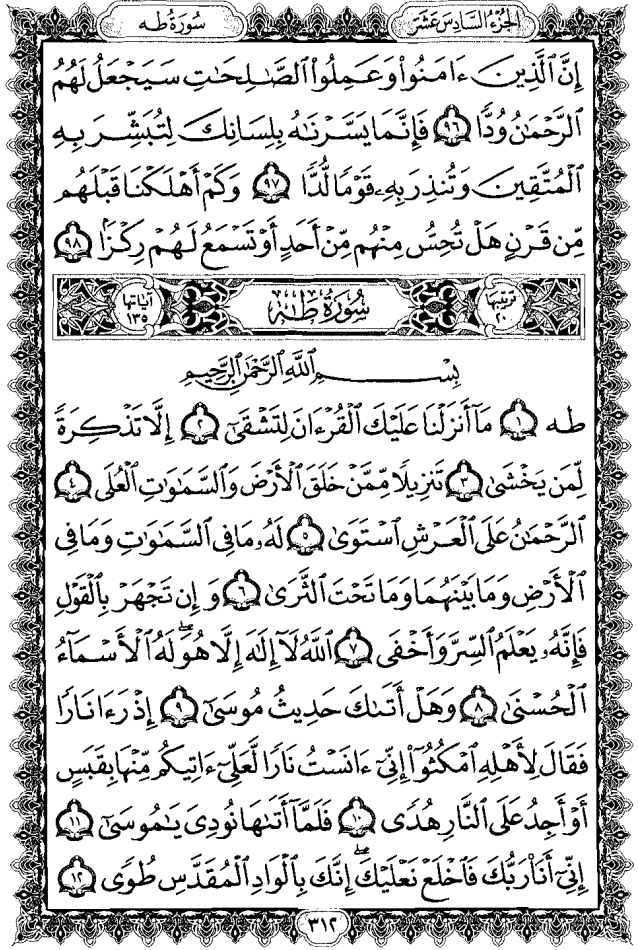 الجزء السادس عشر
سورة طه
إِنَّ ٱلَّذِينَ ءَامَنُوا۟ وَعَمِلُوا۟ ٱلصَّـٰلِحَـٰتِ سَيَجْعَلُ لَهُمُ
ٱلرَّحْمَـٰنُ وُدًّا ٩٦ فَإِنَّمَا يَسَّرْنَـٰهُ بِلِسَانِكَ لِتُبَشِّرَ بِهِ
ٱلْمُتَّقِينَ وَتُنذِرَ بِهِۦ قَوْمًا لُّدًّا ٩٧ وَكَمْ أَهْلَكْنَا قَبْلَهُم
مِّن قَرْنٍ هَلْ تُحِسُّ مِنْهُم مِّنْ أَحَدٍ أَوْ تَسْمَعُ لَهُمْ رِكْزًۢا ٩٨
ترتيبها ٢٠
سُورَةُ طه
آياتها ١٣٥
بِسْمِ ٱللَّهِ ٱلرَّحْمَـٰنِ ٱلرَّحِيمِ
طه ١ مَآ أَنزَلْنَا عَلَيْكَ ٱلْقُرْءَانَ لِتَشْقَىٰٓ ٢ إِلَّا تَذْكِرَةً
لِّمَن يَخْشَىٰ ٣ تَنزِيلًا مِّمَّنْ خَلَقَ ٱلْأَرْضَ وَٱلسَّمَـٰوَٰتِ ٱلْعُلَى ٤
ٱلرَّحْمَـٰنُ عَلَى ٱلْعَرْشِ ٱسْتَوَىٰ ٥ لَهُۥ مَا فِى ٱلسَّمَـٰوَٰتِ وَمَا فِى
ٱلْأَرْضِ وَمَا بَيْنَهُمَا وَمَا تَحْتَ ٱلثَّرَىٰ ٦ وَإِن تَجْهَرْ بِٱلْقَوْلِ
فَإِنَّهُۥ يَعْلَمُ ٱلسِّرَّ وَأَخْفَى ٧ ٱللَّهُ لَآ إِلَـٰهَ إِلَّا هُوَ ۖ لَهُ ٱلْأَسْمَآءُ
ٱلْحُسْنَىٰ ٨ وَهَلْ أَتَىٰكَ حَدِيثُ مُوسَىٰٓ ٩ إِذْ رَءَا نَارًا
فَقَالَ لِأَهْلِهِ ٱمْكُثُوٓا۟ إِنِّىٓ ءَانَسْتُ نَارًا لَّعَلِّىٓ ءَاتِيكُم مِّنْهَا بِقَبَسٍ
أَوْ أَجِدُ عَلَى ٱلنَّارِ هُدًى ١٠ فَلَمَّآ أَتَىٰهَا نُودِىَ يَـٰمُوسَىٰٓ ١١
إِنِّىٓ أَنَا۠ رَبُّكَ فَٱخْلَعْ نَعْلَيْكَ ۖ إِنَّكَ بِٱلْوَادِ ٱلْمُقَدَّسِ طُوًى ١٢
٣١٢